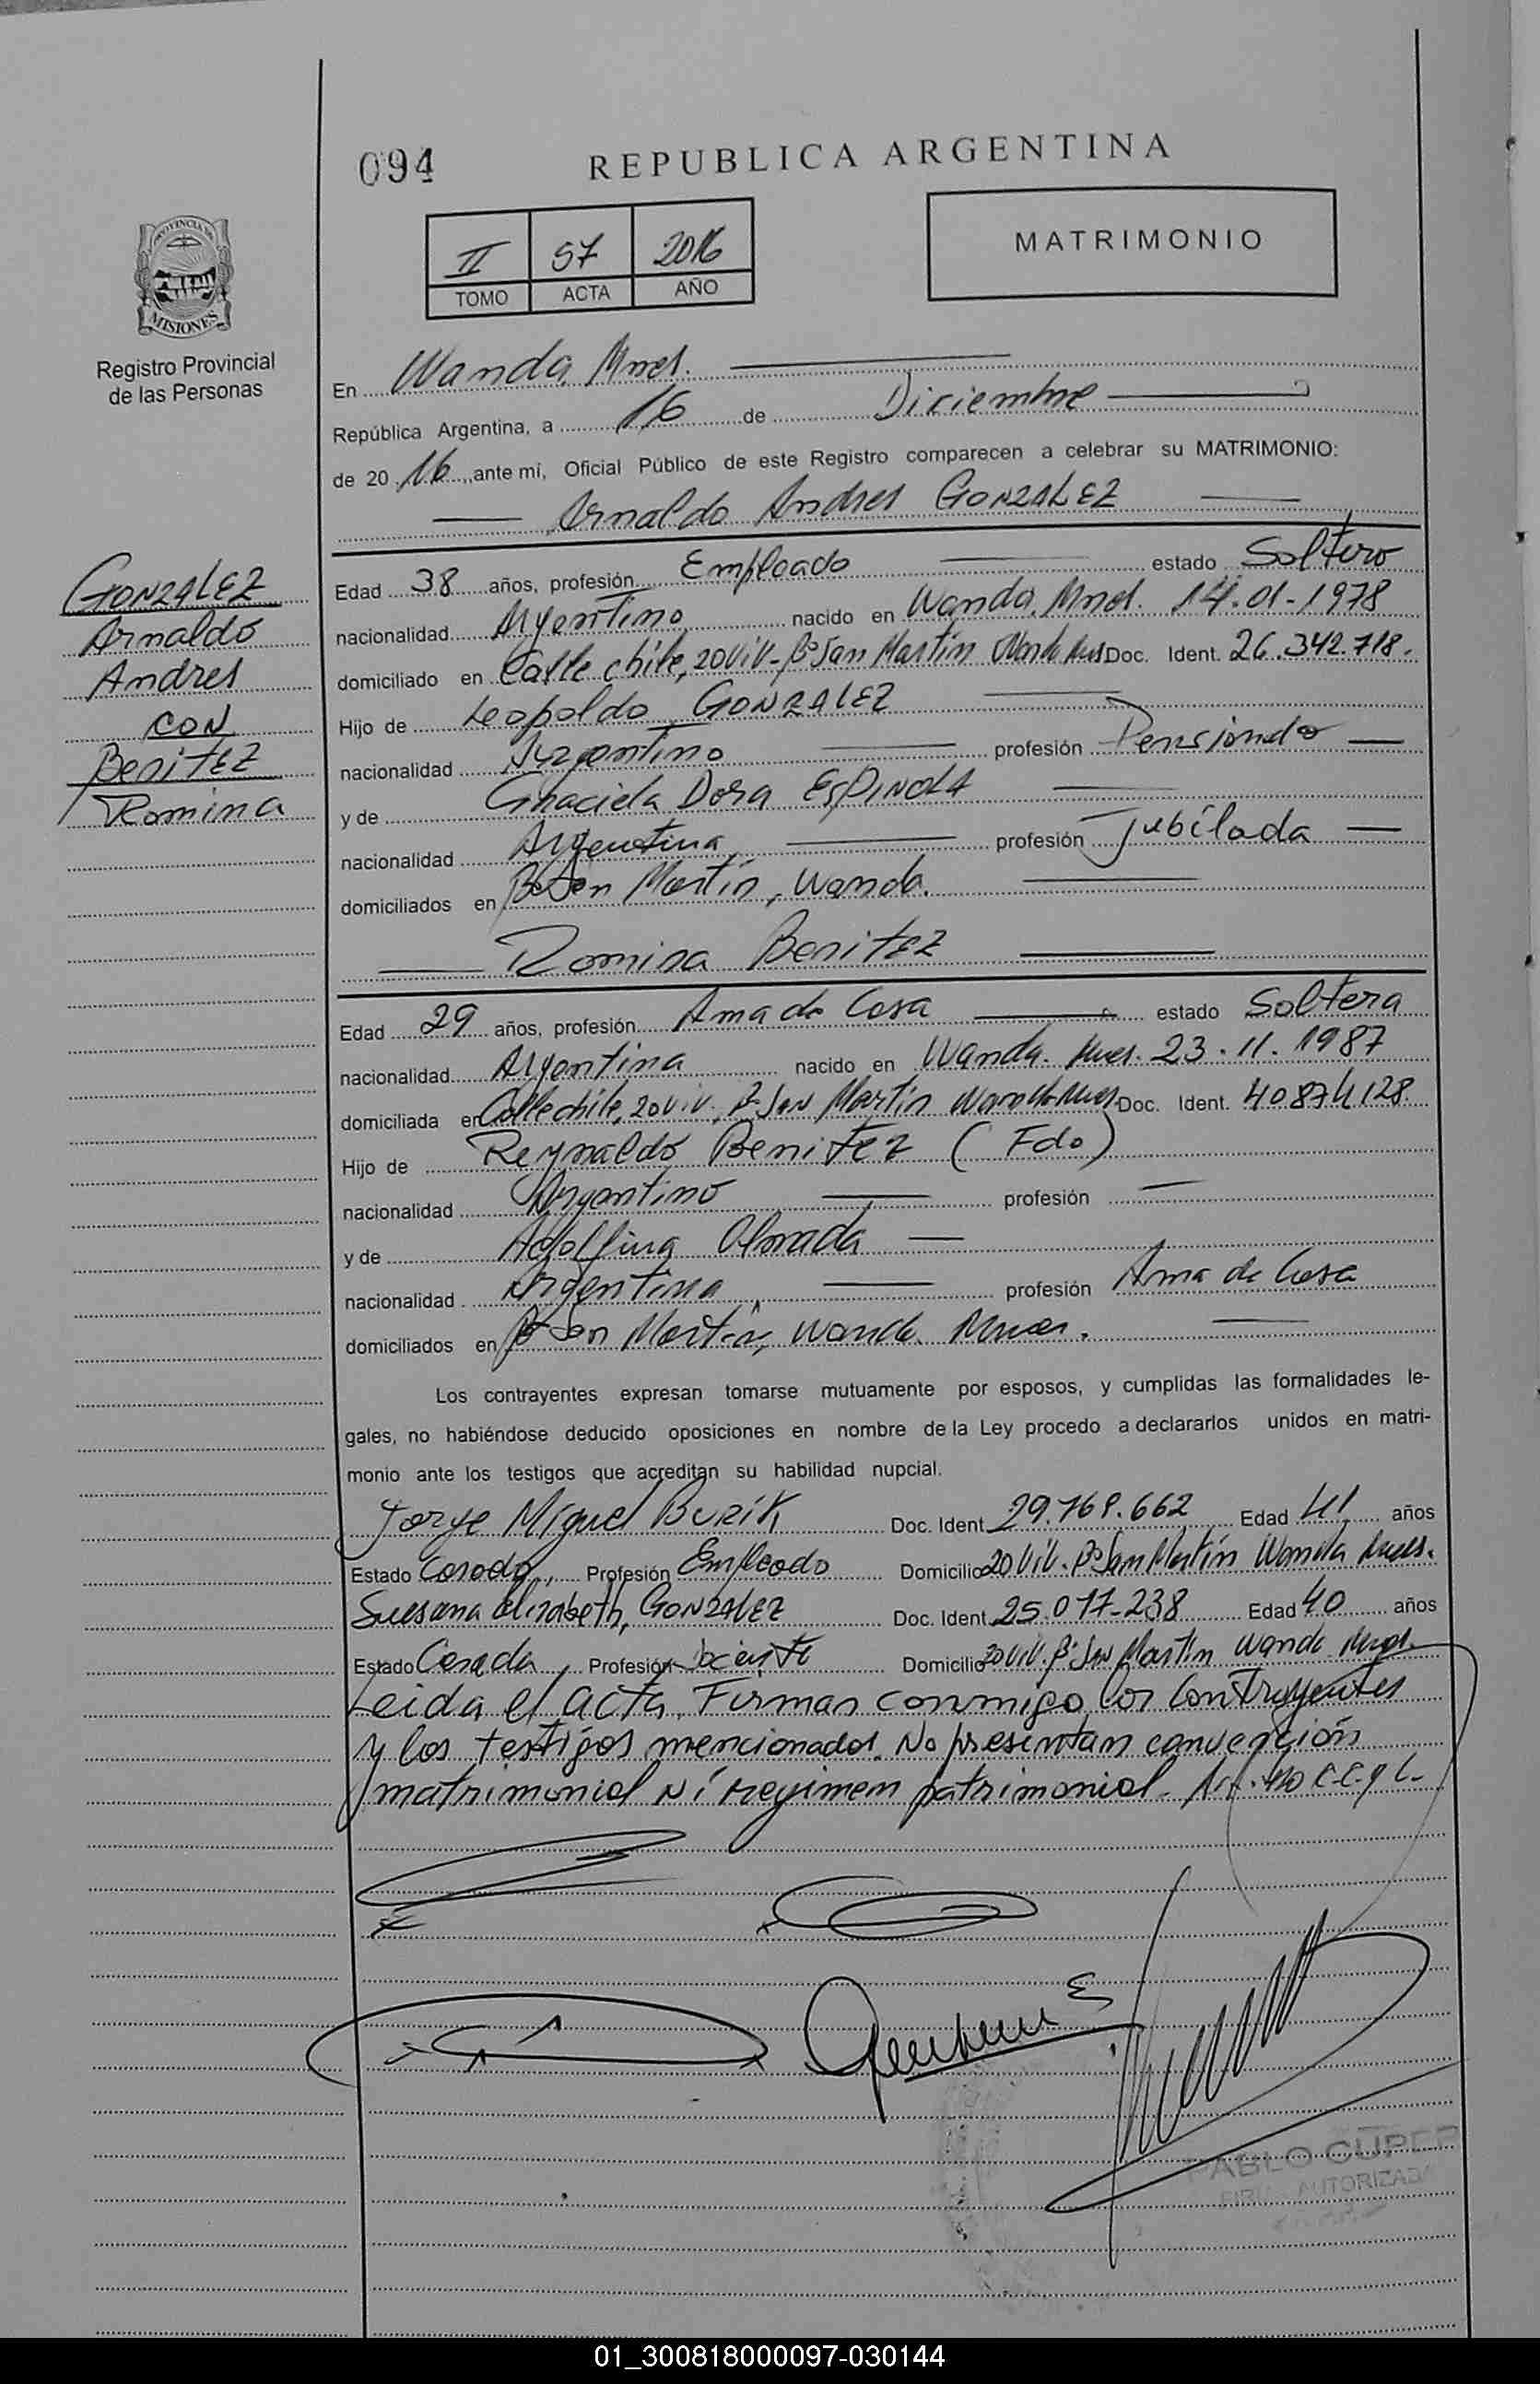 094
REPUBLICA ARGENTINA
MATRIMONIO
II 57 2016
TOMO ACTA AÑO
PROVINCIA DE
MISIONES
Registro Provincial
de las Personas
En Wanda, Mnes.
República Argentina, a 16 de Diciembre
de 20 16, ante mí, Oficial Público de este Registro comparecen a celebrar su MATRIMONIO:
Arnaldo Andres GONZALEZ
GONZALEZ
Arnaldo
Andres
CON
BenitEZ
Romina
Edad 38 años, profesión Empleado estado Soltero
nacionalidad Argentino nacido en Wanda, Mnes. 14-01-1978
domiciliado en Calle chile, 20 Viv - Bº San Martín Wanda Mnes Doc. Ident. 26.342.718.
Hijo de Leopoldo GONZALEZ
nacionalidad Argentino profesión Pensionado
y de Graciela Dora ESPINOLA
nacionalidad Argentina profesión Jubilada
domiciliados en Bº San Martín, Wanda.
Romina BenitEZ
Edad 29 años, profesión Ama de Casa estado Soltera
nacionalidad Argentina nacido en Wanda. Mnes. 23.11.1987
domiciliada en Calle chile, 20 Viv., Bº San Martín Wanda Mnes Doc. Ident. 40874128.
Hijo de Reynaldo BenitEz (Fdo)
nacionalidad Argentino profesión —
y de Adolfina
nacionalidad Argentina profesión Ama de Casa
domiciliados en Bº San Martín, Wanda Mnes.
Los contrayentes expresan tomarse mutuamente por esposos, y cumplidas las formalidades le-
gales, no habiéndose deducido oposiciones en nombre de la Ley procedo a declararlos unidos en matri-
monio ante los testigos que acreditan su habilidad nupcial.
Jorge Miguel BURIK Doc. Ident. 29.768.662 Edad 41 años
Estado Casado, Profesión Empleado Domicilio 20 Viv. Bº San Martín Wanda Mnes.
Susana Elizabeth, GONZALEZ Doc. Ident. 25.017-238 Edad 40 años
Estado Casada, Profesión Docente Domicilio 20 Viv. Bº San Martín Wanda Mnes.
Leida el acta, Firman conmigo los Contrayentes
y los testigos mencionados. No presentan convención
matrimonial Ni regimen patrimonial. Art. 420 C.C. y C.
PABLO
AUTORIZADA
01_300818000097-030144